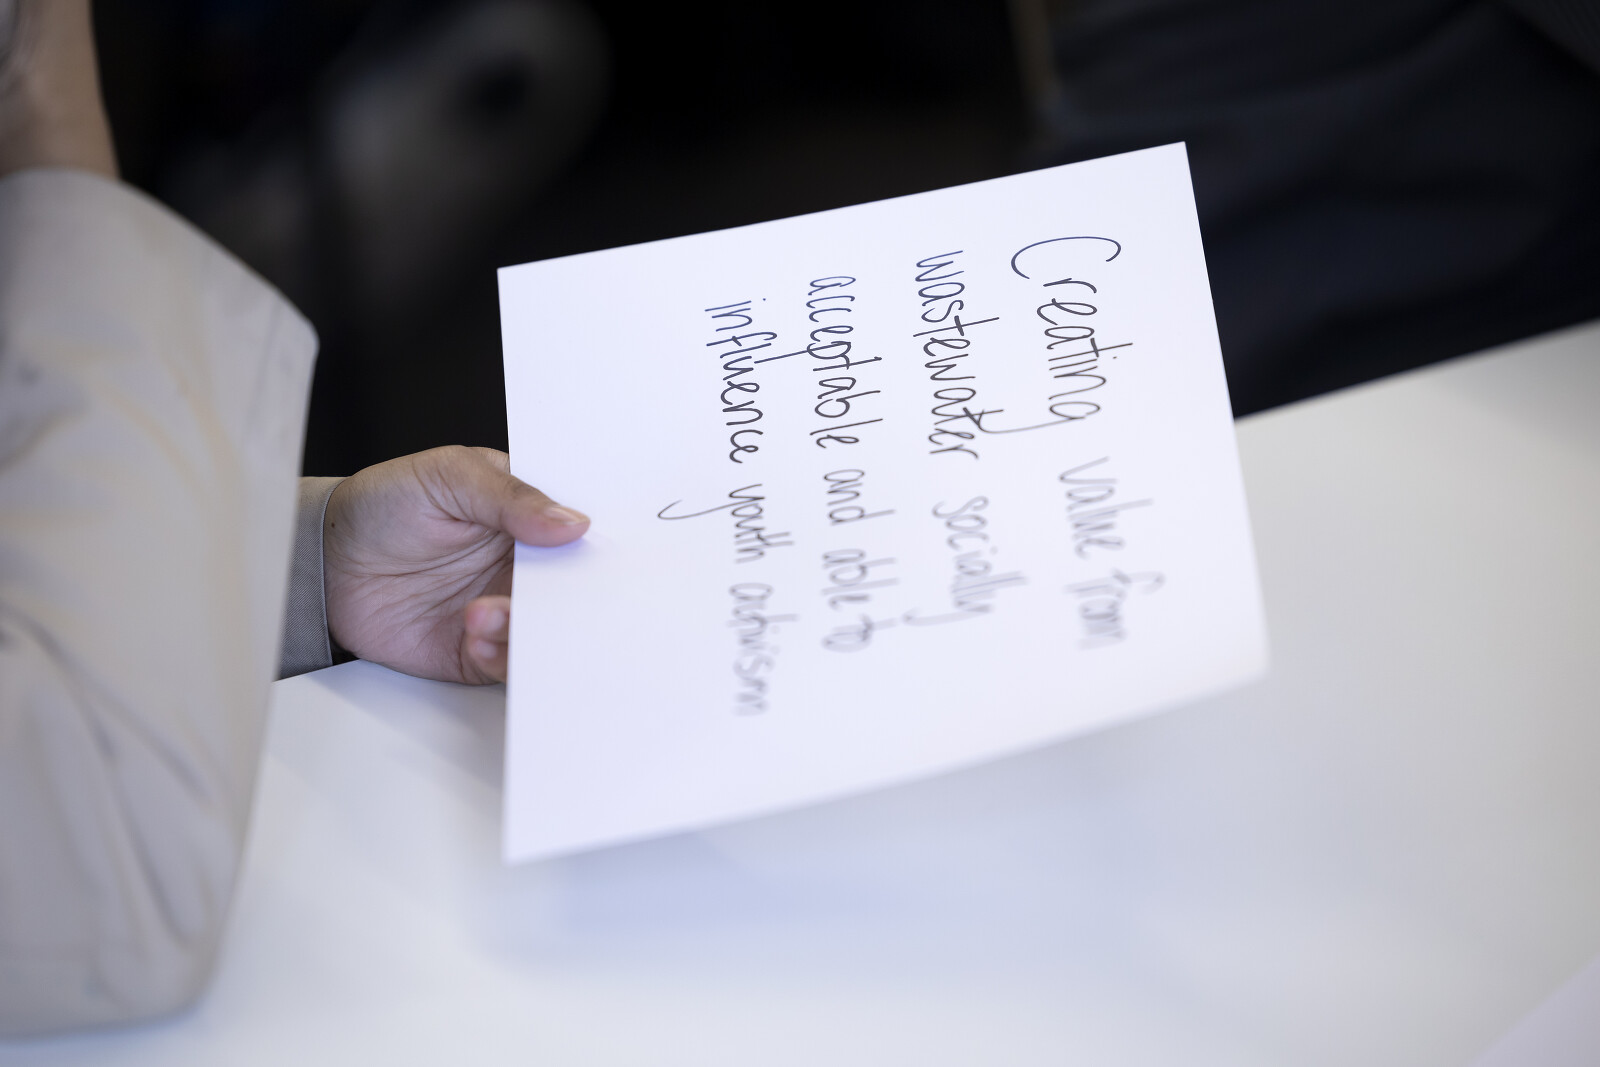 Creating value from
wastewater socially
acceptable and able to
influence youth activism